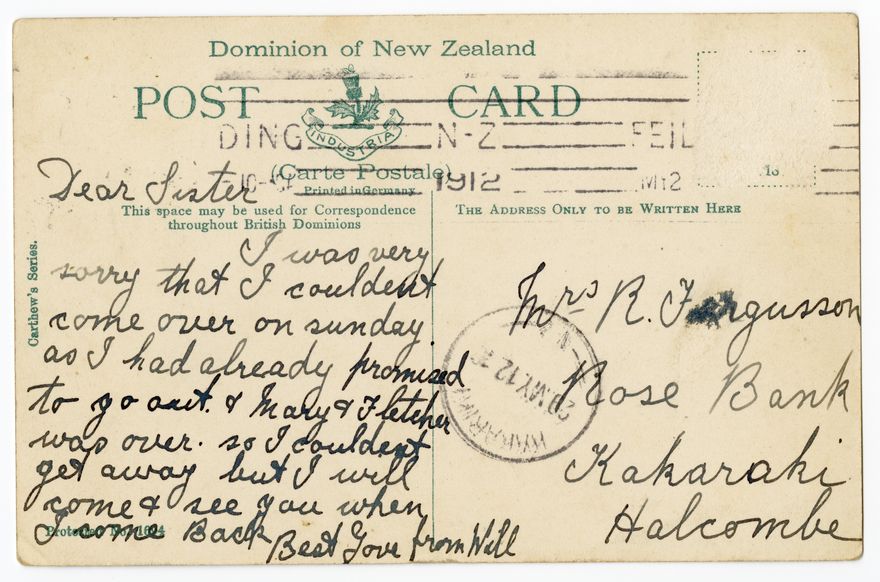 Dominion of New Zealand
POST CARD
INDUSTRIA
DING N-Z FEIL
1912 MY2
(Carte Postale)
Printed in Germany
This space may be used for Correspondence
throughout British Dominions
THE ADDRESS ONLY TO BE WRITTEN HERE
Carthew's Series.
Dear Sister
I was very
sorry that I couldent
come over on sunday
as I had already promised
to go out. & Mary & Fletcher
was over. so I couldent
get away but I will
come & see you when
I come Back
Best Love from Will
Protected No. 1624
Mrs R. Fergusson
Rose Bank
Kakaraki
Halcombe
MY 12